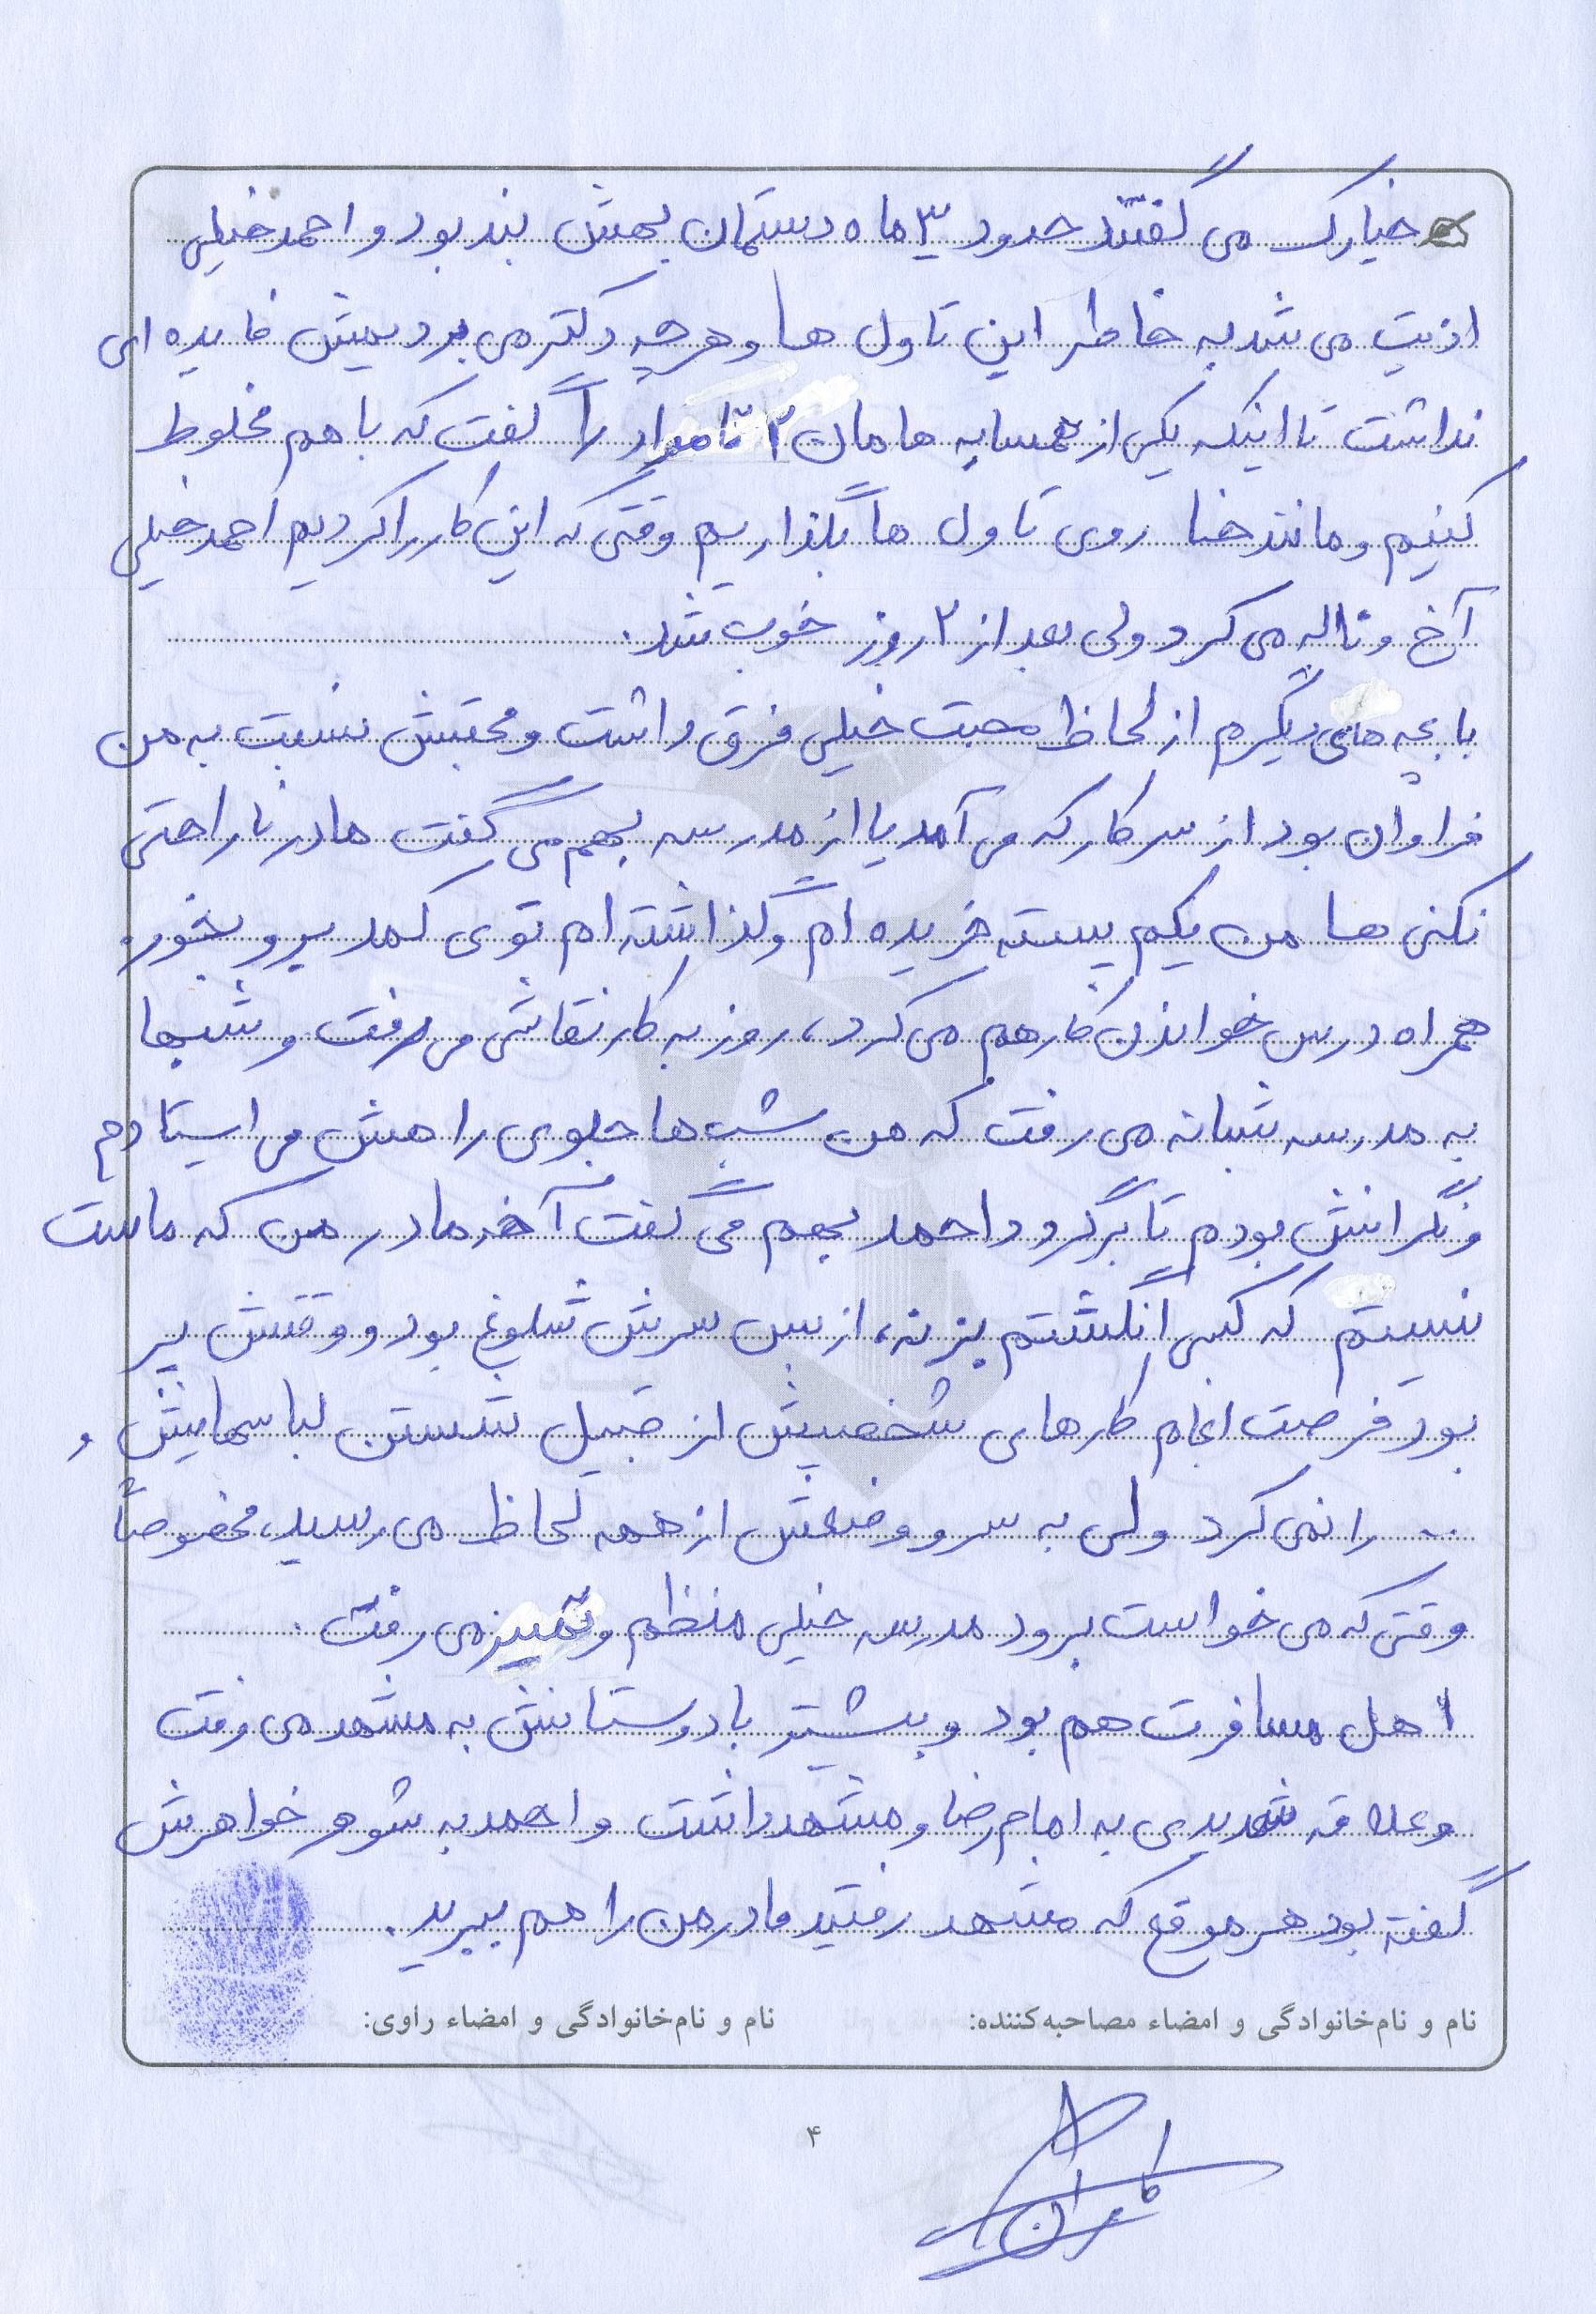 خیارک می گفتند حدود ۳ ماه دستمان بهش بند بود و احمد خیلی
اذیت می شد به خاطر این تاول ها و هر چه دکتر می بردیمش فایده ای
نداشت تا اینکه یکی از همسایه هامان ۲ تا مواد را گفت که با هم مخلوط
کنیم و مانند حنا روی تاول ها بگذاریم وقتی که این کار را کردیم احمد خیلی
آخ و ناله می کرد ولی بعد از ۲ روز خوب شد.
با بچه های دیگرم از لحاظ محبت خیلی فرق داشت و محبتش نسبت به من
فراوان بود از سر کار که می آمد یا از مدرسه بهم می گفت مادر ناراحتی
نکنی ها من یکم پسته خریده ام و گذاشته ام توی کمد برو بخور.
همراه درس خواندن کار هم می کرد، روز به کار نقاشی می رفت و شبها
به مدرسه شبانه می رفت که من شب ها جلوی راهش می ایستادم
و نگرانش بودم تا برگردد احمد بهم می گفت آخه مادر من که ماست
نیستم که کسی انگشتم بزنه، از بس سرش شلوغ بود و وقتش پر
بود فرصت انجام کارهای شخصیش از قبیل شستن لباسهایش و
... را نمی کرد ولی به سر و وضعش از همه لحاظ می رسید، مخصوصاً
وقتی که می خواست برود مدرسه خیلی منظم و تمیز می رفت.
اهل مسافرت هم بود و بیشتر با دوستانش به مشهد می رفت
و علاقه شدیدی به امام رضا و مشهد داشت و احمد به شوهر خواهرش
گفته بود هر موقع که مشهد رفتید مادر من را هم ببرید.
نام و نام‌خانوادگی و امضاء مصاحبه‌کننده: نام و نام‌خانوادگی و امضاء راوی:
۴